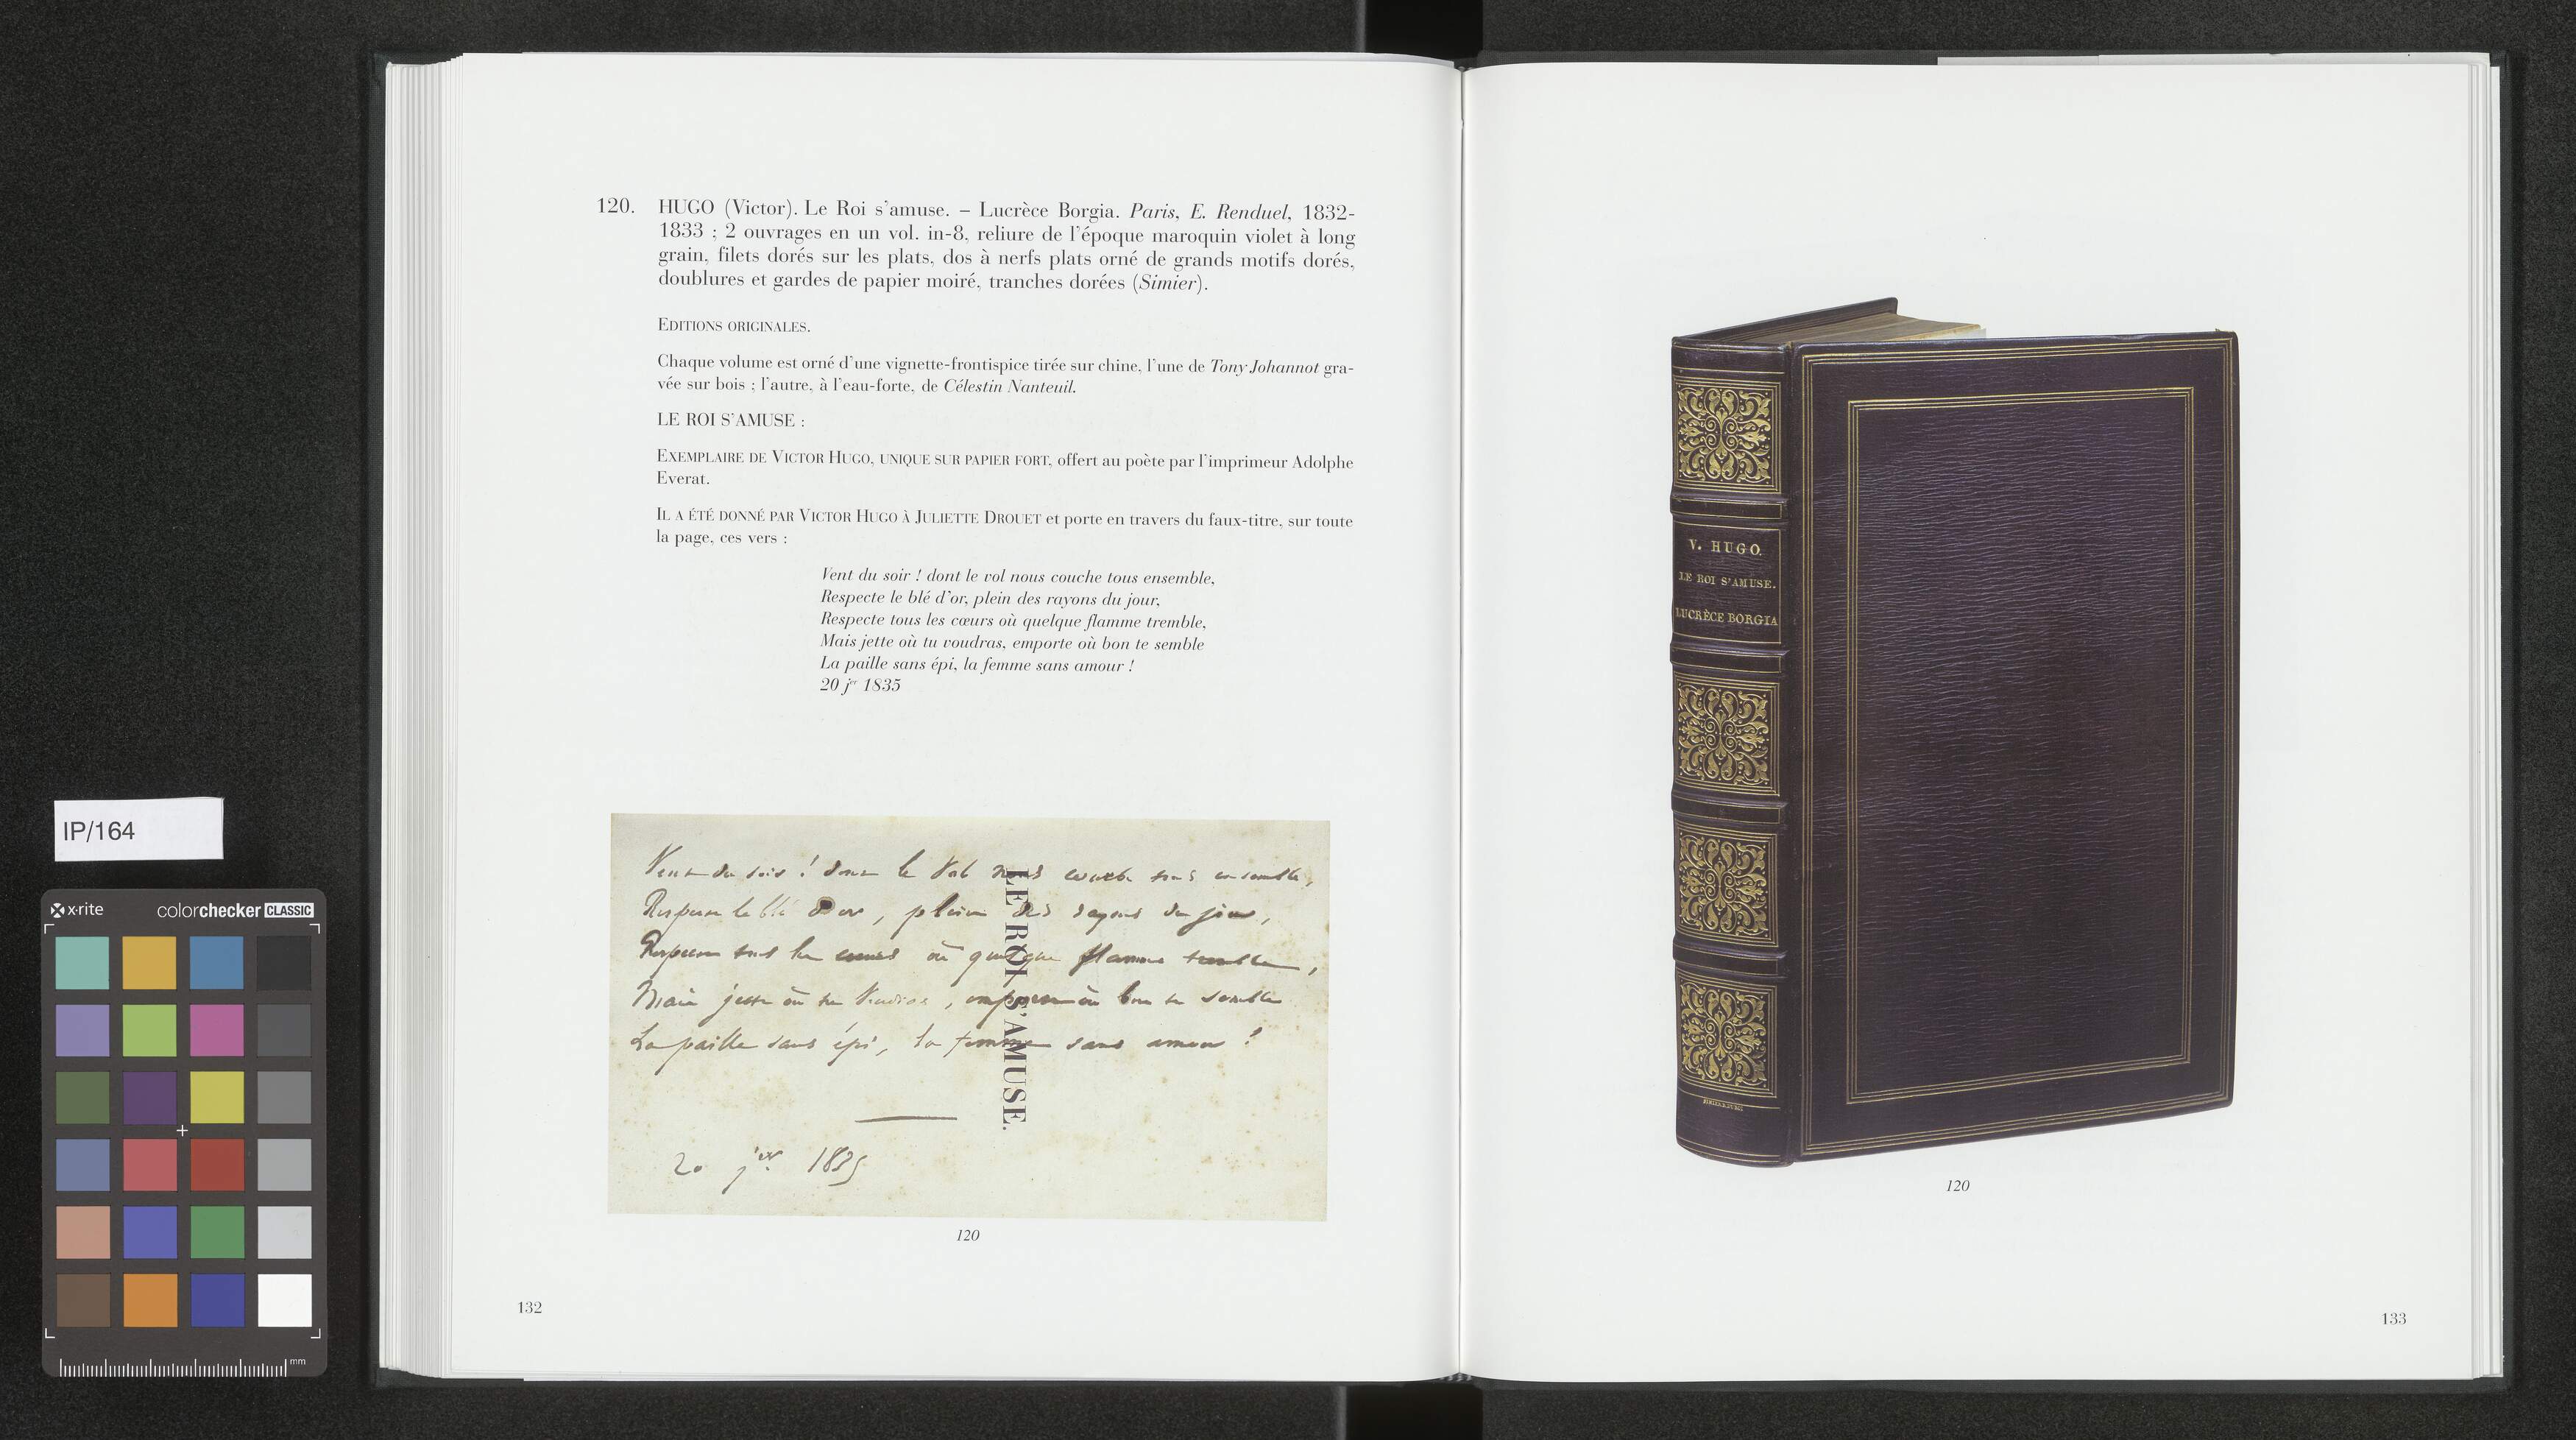 120. HUGO (Victor). Le Roi s'amuse. – Lucrèce Borgia. Paris, E. Renduel, 1832-
1833 ; 2 ouvrages en un vol. in-8, reliure de l'époque maroquin violet à long
grain, filets dorés sur les plats, dos à nerfs plats orné de grands motifs dorés,
doublures et gardes de papier moiré, tranches dorées (Simier).
EDITIONS ORIGINALES.
Chaque volume est orné d'une vignette-frontispice tirée sur chine, l'une de Tony Johannot gra-
vée sur bois ; l'autre, à l'eau-forte, de Célestin Nanteuil.
LE ROI S'AMUSE :
EXEMPLAIRE DE VICTOR HUGO, UNIQUE SUR PAPIER FORT, offert au poète par l'imprimeur Adolphe
Everat.
IL A ÉTÉ DONNÉ PAR VICTOR HUGO À JULIETTE DROUET et porte en travers du faux-titre, sur toute
la page, ces vers :
Vent du soir ! dont le vol nous couche tous ensemble,
Respecte le blé d'or, plein des rayons du jour,
Respecte tous les cœurs où quelque flamme tremble,
Mais jette où tu voudras, emporte où bon te semble
La paille sans épi, la femme sans amour !
20 jer 1835
Vent du soir ! dont le vol nous courbe tous ensemble,
Respecte le blé d'or, plein des rayons du jour,
Respecte tous les cœurs où quelque flamme tremble,
Mais jette où tu voudras, emporte où bon te semble
La paille sans épi, la femme sans amour !
20 jer 1835
LE ROI S'AMUSE.
120
132
V. HUGO.
LE ROI S'AMUSE.
LUCRÈCE BORGIA
120
133
IP/164
x-rite colorchecker CLASSIC
mm